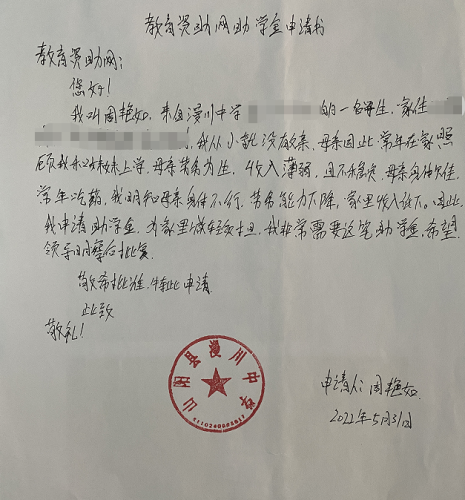 教育资助网助学金申请书
教育资助网:
您好!
我叫周艳如,来自漫川中学 的一名学生,家住
我从小就没有父亲,母亲因此常年在家照
顾我和 上学,母亲 为生,收入薄弱,且不稳定,母亲身体欠佳,
常年吃药,我明白母亲身体不行,劳务能力下降,家里收入低下。因此
我申请助学金,为家里减轻负担,我非常需要这笔助学金,希望
领导明察后批复
敬希批准,特此申请
此致
敬礼!
山阳县漫川中学
申请人:周艳如
2022年5月31日